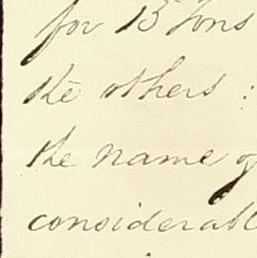 for 13 Tons
the others :
the name of
considerabl